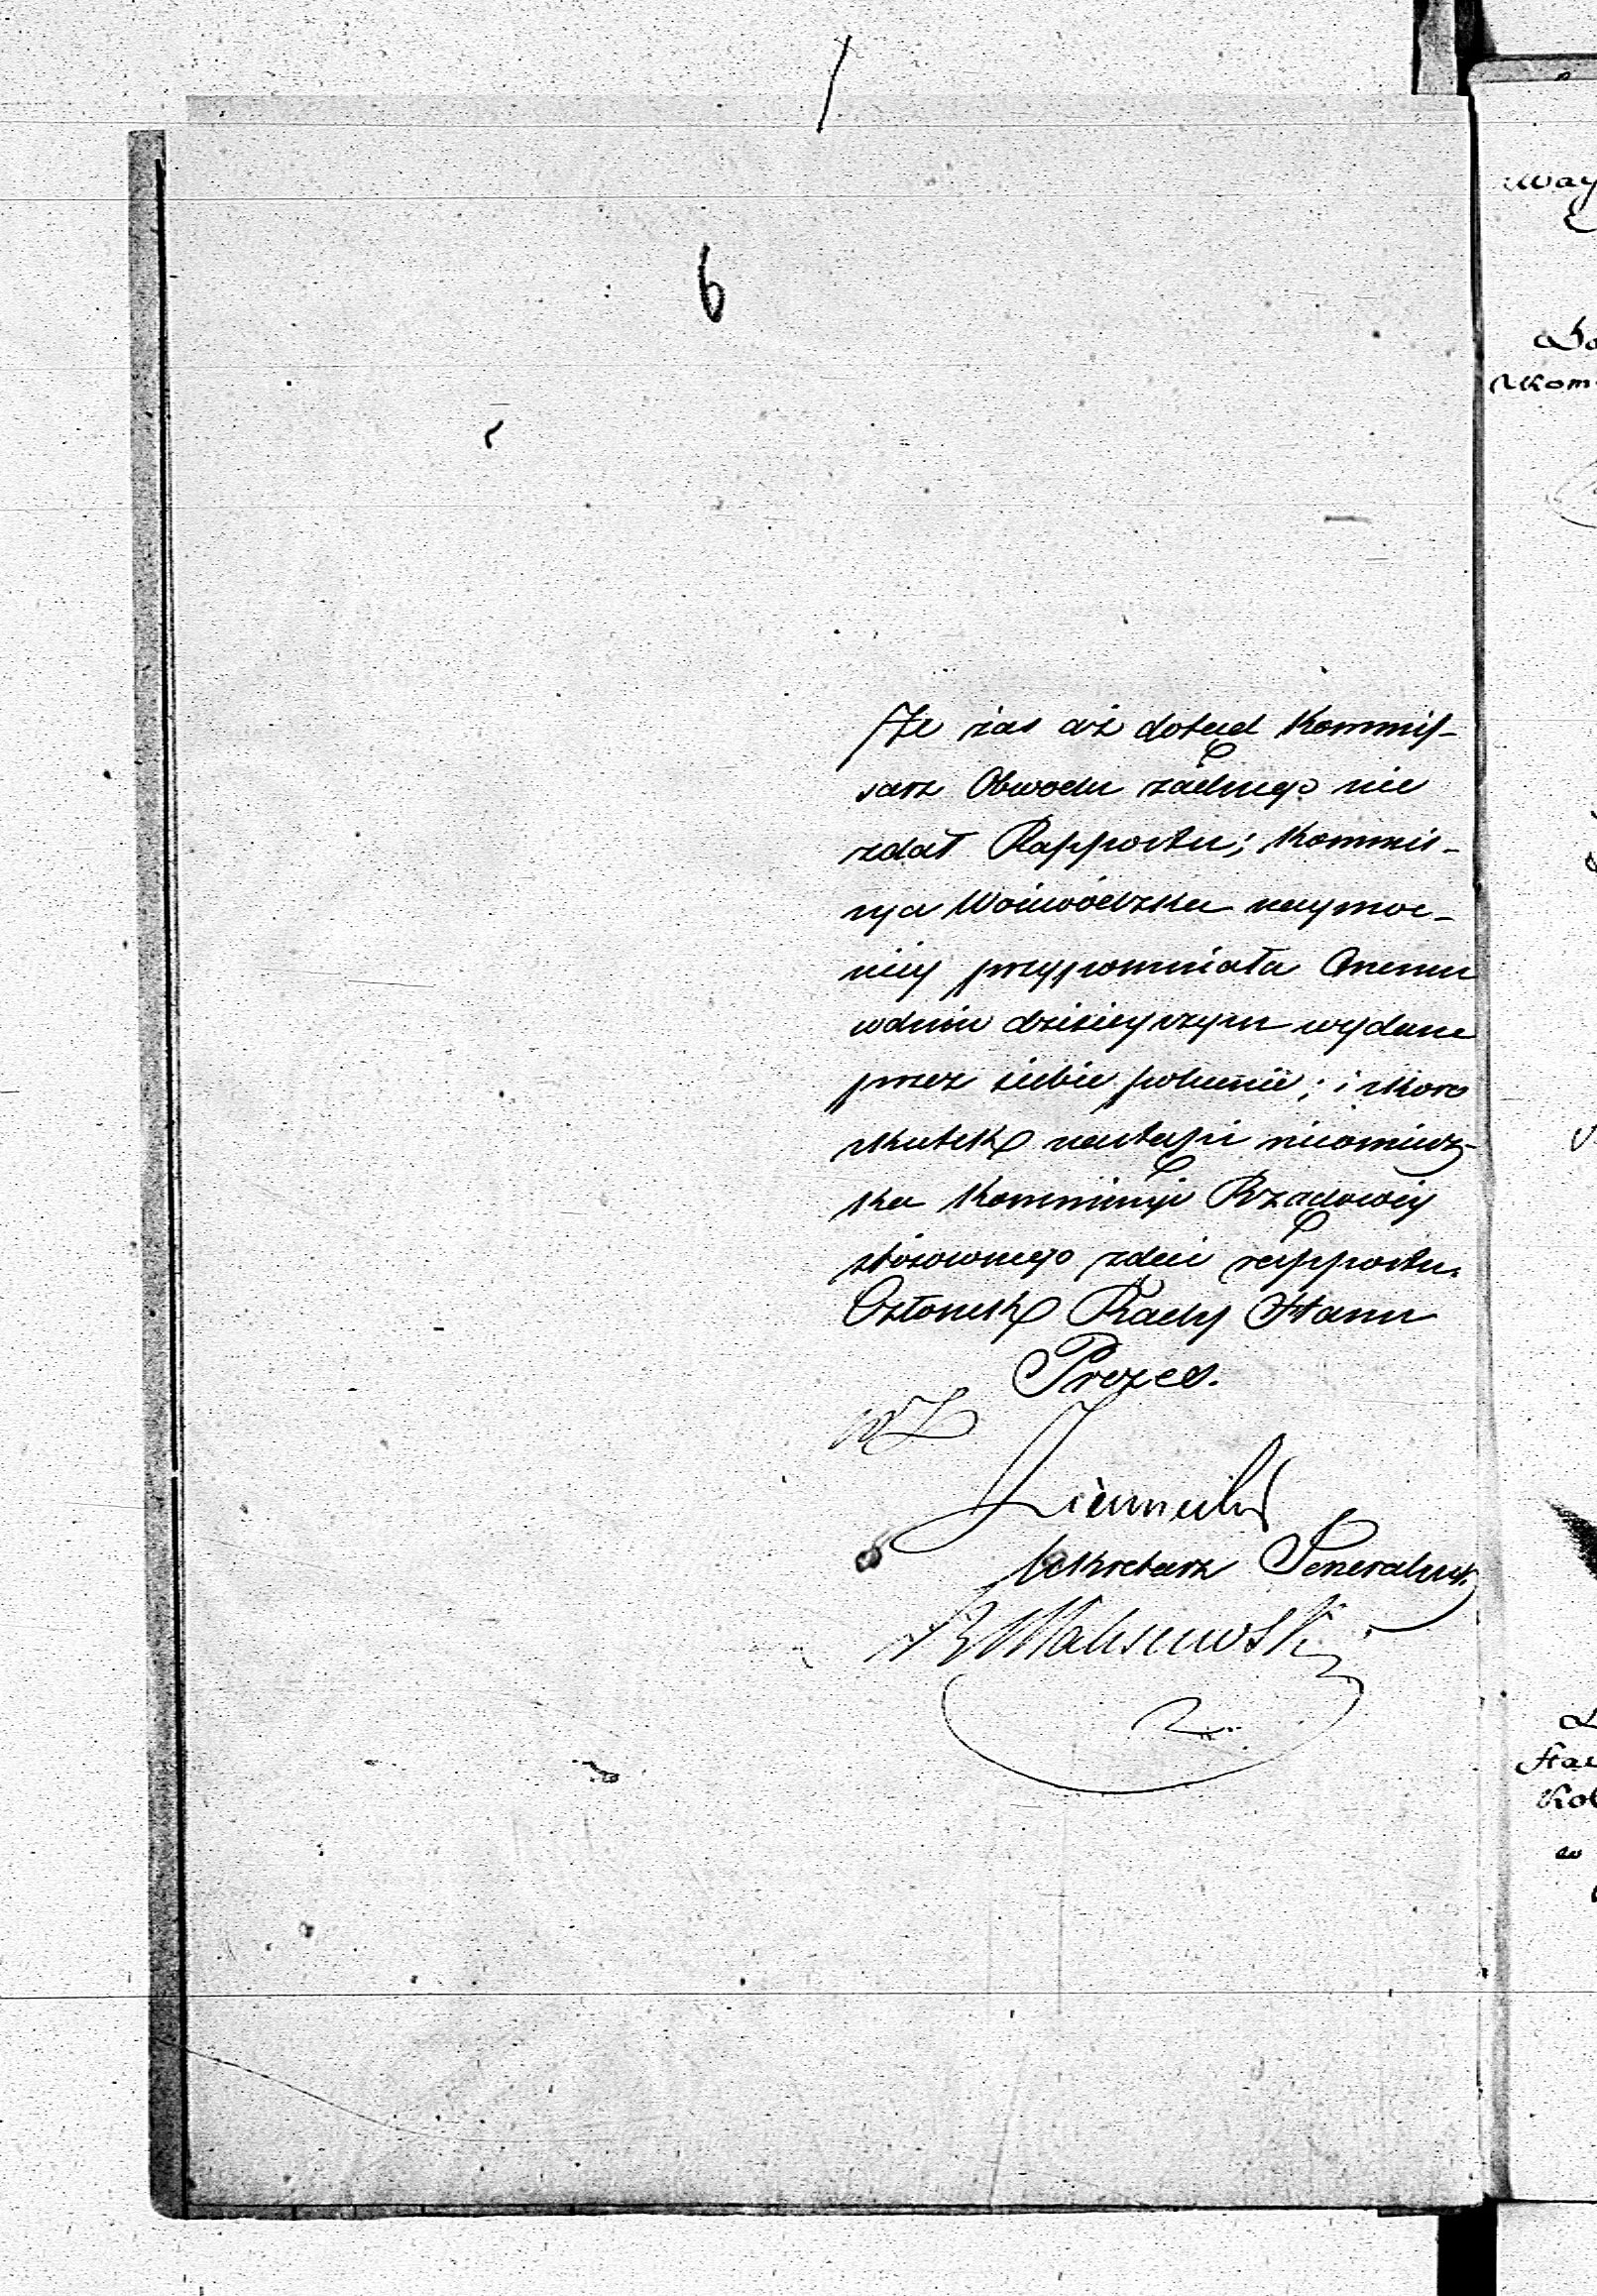 6
Że zas aż dotąd Kommis-
sarz Obwodu żadnego nie
zdał Rapportu; Kommis-
sya Woiewódzka naymoc-
niey przypomniała Onemu
w dniu dzisieyszym wydane
przez siebie polecenie; i skoro
skutek nastąpi nieomiesz-
ka Kommissyi Rządowéy
stósownego zdać rapportu.
Członek Rady Stanu
Prezes.
WZ
Sekretarz Generalny
Malinowski